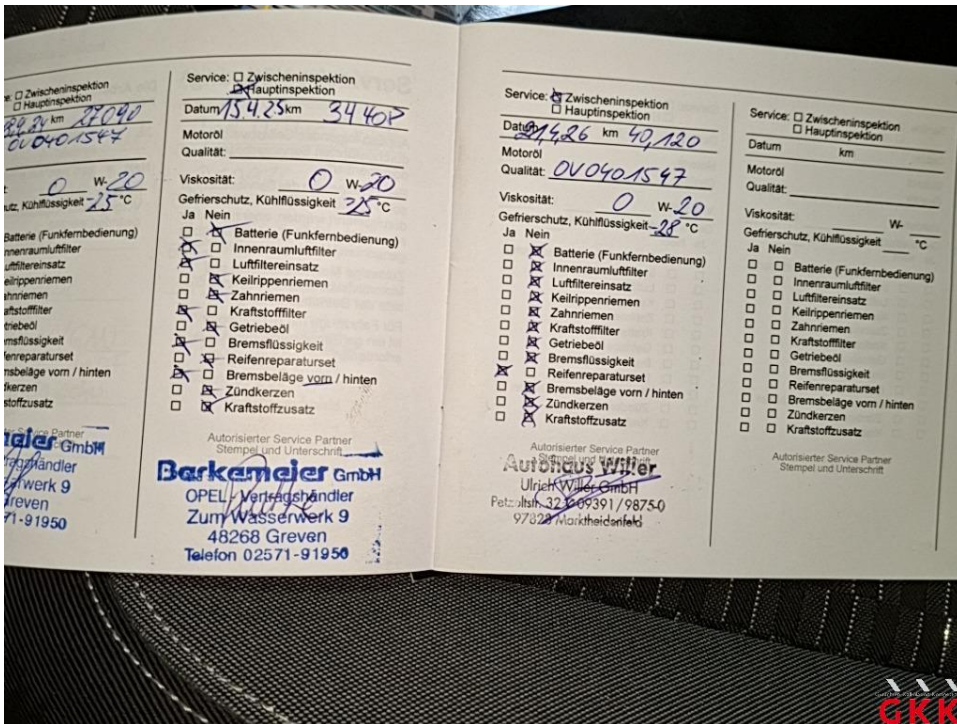 Zwischeninspektion
Hauptinspektion
km 27090
0V0401547
0 W-20
Kühlflüssigkeit -25 °C
Batterie (Funkfernbedienung)
GmbH
71-91950
Service: Zwischeninspektion
Hauptinspektion
Datum 15.4.25 km 34408
Motoröl
Qualität:
Viskosität: 0 W-20
Gefrierschutz, Kühlflüssigkeit -25 °C
Ja Nein
Batterie (Funkfernbedienung)
Innenraumluftfilter
Luftfiltereinsatz
Keilrippenriemen
Zahnriemen
Kraftstofffilter
Getriebeöl
Bremsflüssigkeit
Reifenreparaturset
Bremsbeläge vorn / hinten
Zündkerzen
Kraftstoffzusatz
Autorisierter Service Partner
Stempel und Unterschrift
Barkemeier GmbH
OPEL Vertragshändler
Zum Wasserwerk 9
48268 Greven
Telefon 02571-91950
Service: Zwischeninspektion
Hauptinspektion
Datum 21,4,26 km 40,120
Motoröl
Qualität: 0V0401547
Viskosität: 0 W-20
Gefrierschutz, Kühlflüssigkeit -28 °C
Ja Nein
Batterie (Funkfernbedienung)
Innenraumluftfilter
Luftfiltereinsatz
Keilrippenriemen
Zahnriemen
Kraftstofffilter
Getriebeöl
Bremsflüssigkeit
Reifenreparaturset
Bremsbeläge vorn / hinten
Zündkerzen
Kraftstoffzusatz
Autorisierter Service Partner
Stempel und
Autohaus Willer
Ulrich Willer GmbH
Petzoltstr. 32 09391/9875-0
97828 Marktheidenfeld
Service: Zwischeninspektion
Hauptinspektion
Datum km
Motoröl
Qualität:
Viskosität: W-
Gefrierschutz, Kühlflüssigkeit °C
Ja Nein
Batterie (Funkfernbedienung)
Innenraumluftfilter
Luftfiltereinsatz
Keilrippenriemen
Zahnriemen
Kraftstofffilter
Getriebeöl
Bremsflüssigkeit
Reifenreparaturset
Bremsbeläge vorn / hinten
Zündkerzen
Kraftstoffzusatz
Autorisierter Service Partner
Stempel und Unterschrift
GKK